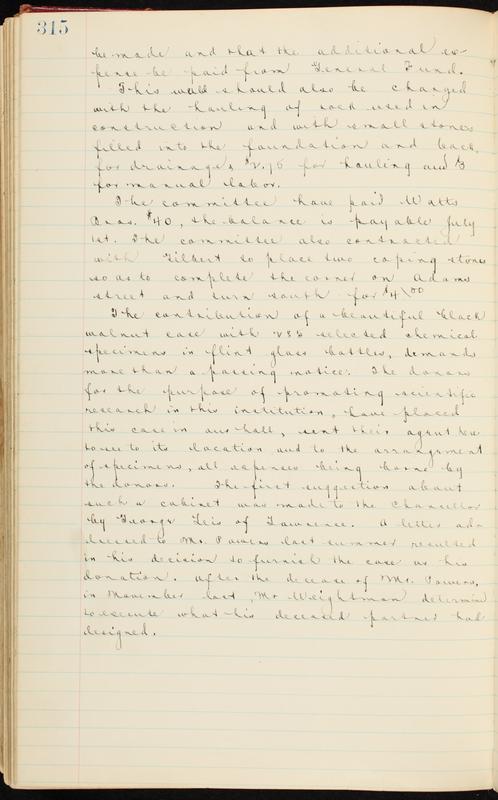 315
be made and that the additional ex-
pense be paid from General Fund.
This wall should also be charged
with the hauling of rock used in
construction and with small stones
filled into the foundation and back
for drainage, for hauling and $3
for manual labor.
The committee have paid Watts
Bros. $40, the balance is payable July
1st. The committee also contracted
with Gilbert to place two coping stones
so as to complete the corner on Adams
street and turn south for $4.00
The contribution of a beautiful black
walnut case with selected chemical
specimens in flint glass bottles, demands
more than a passing notice. The donors
for the purpose of promoting scientific
research in this institution, have placed
this case in our hall, sent their agent here
to see to its location and to the arrangement
of specimens, all expenses being borne by
the donors. The first suggestion about
such a cabinet was made to the Chancellor
by George Leis of Lawrence. A letter ad-
dressed to Mr. Powers last summer resulted
in his decision to furnish the case as his
donation. After the decease of Mr. Powers,
in November last, Mr Weightman determined
to execute what his deceased partner had
designed.